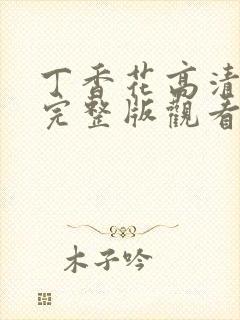 丁香花高清
完整版觀看
木子吟